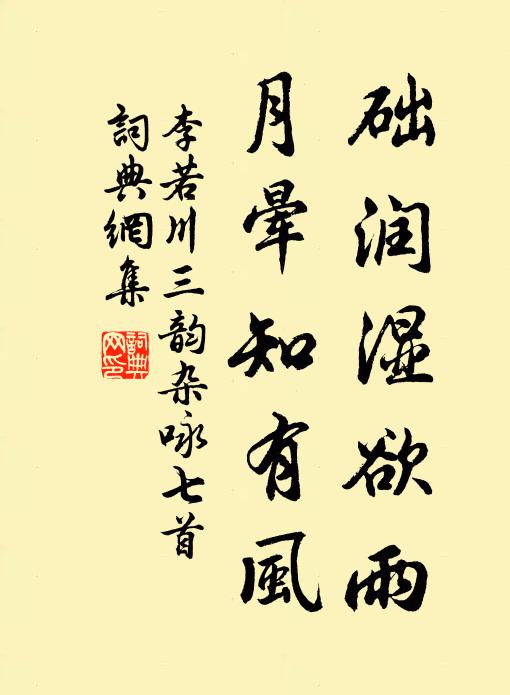 础润湿欲雨
月晕知有風
李若川三韵杂咏七首
詞典網集
詞典
网印